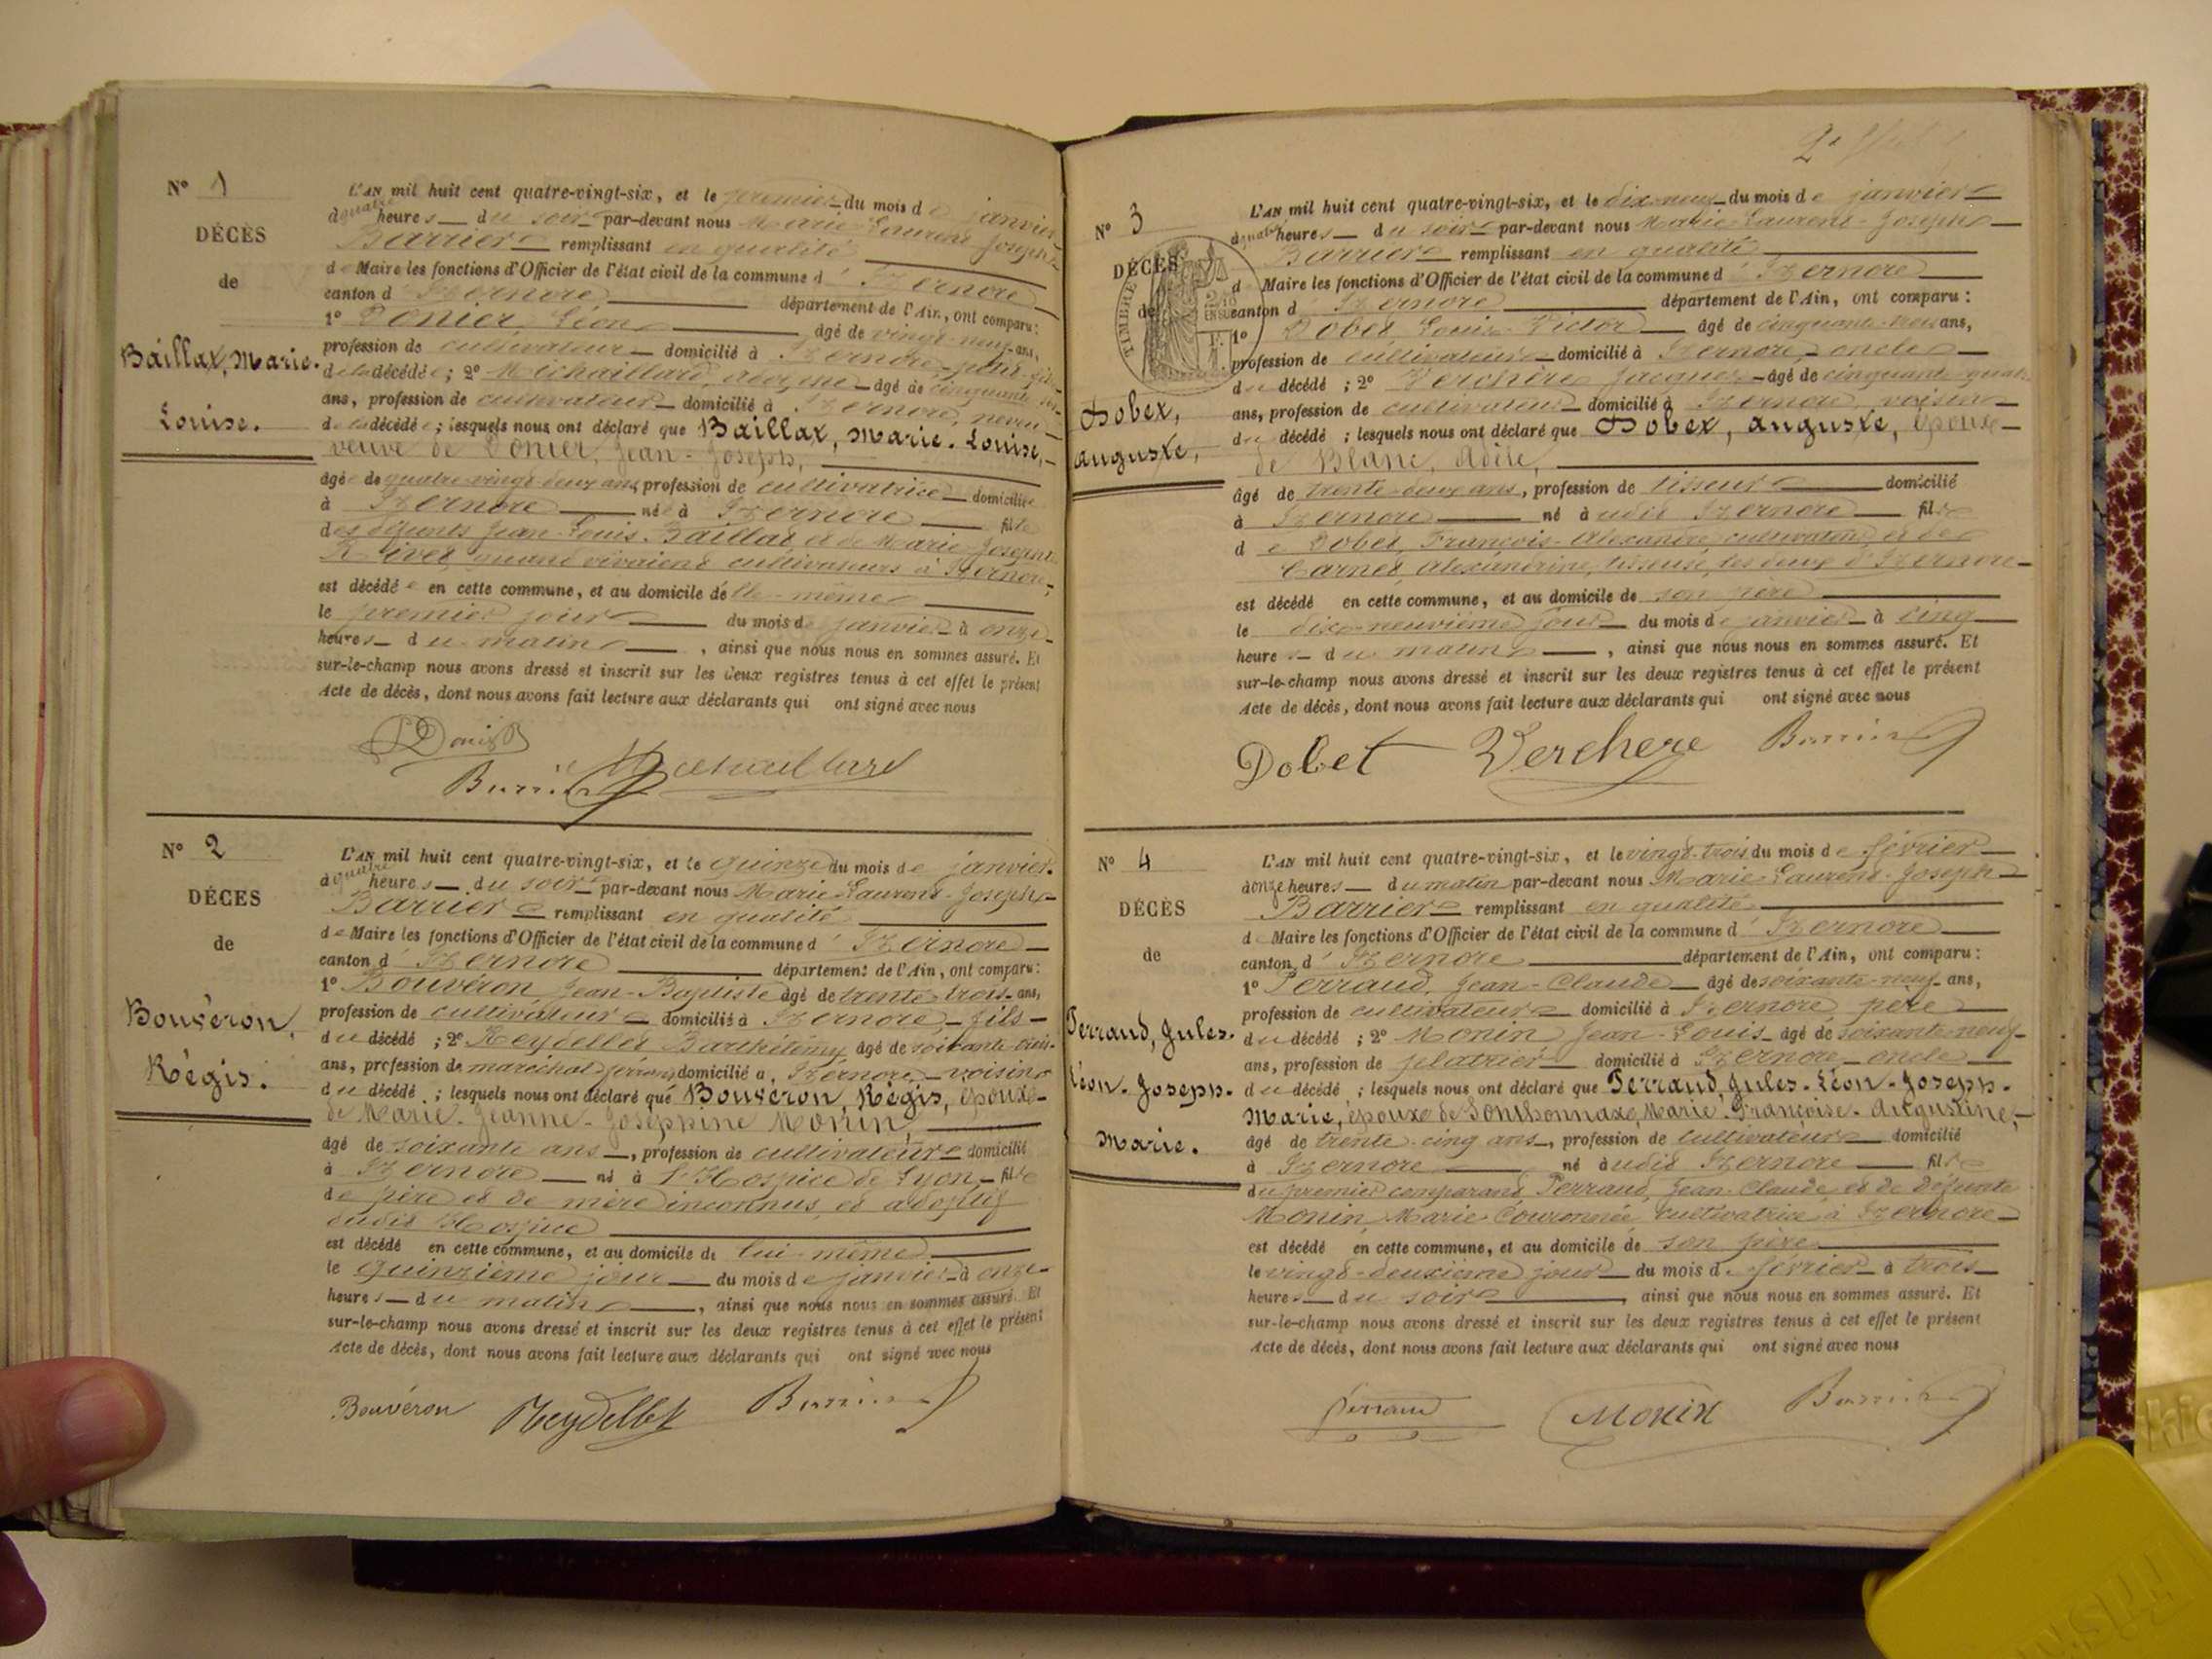 N° 1
DÉCÈS
de
Baillat, Marie-
Louise.
L'AN mil huit cent quatre-vingt-six, et le premier du mois de janvier
à quatre heures du soir par-devant nous Marie Laurent Joseph
Barrier remplissant en qualité
de Maire les fonctions d'Officier de l'état civil de la commune d'Izernore
canton d'Izernore département de l'Ain, ont comparu :
1° Donier, Léon âgé de vingt-neuf ans,
profession de cultivateur domicilié à Izernore, petit-fils
de la décédée ; 2° Michaillard, âgé de cinquante
ans, profession de cultivateur domicilié à Izernore, neveu
de la décédée ; lesquels nous ont déclaré que Baillat, Marie-Louise,
veuve de Donier, Jean-Joseph,
âgée de quatre-vingt-deux ans, profession de cultivatrice domiciliée
à Izernore née à Izernore fille
des défunts Jean-Louis Baillat et de Marie-Josephte
Rivet, quand vivaient cultivateurs à Izernore,
est décédée en cette commune, et au domicile d'elle-même
le premier jour du mois de janvier à onze
heures du matin, ainsi que nous nous en sommes assuré. Et
sur-le-champ nous avons dressé et inscrit sur les deux registres tenus à cet effet le présent
Acte de décès, dont nous avons fait lecture aux déclarants qui ont signé avec nous
Donier
Barrier Michaillard
N° 2
DÉCES
de
Bouvéron,
Régis.
L'AN mil huit cent quatre-vingt-six, et le quinze du mois de janvier
à quatre heures du soir par-devant nous Marie Laurent-Joseph
Barrier remplissant en qualité
de Maire les fonctions d'Officier de l'état civil de la commune d'Izernore
canton d'Izernore département de l'Ain, ont comparu :
1° Bouvéron Jean-Baptiste âgé de trente-trois ans,
profession de cultivateur domicilié à Izernore, fils
du décédé ; 2° Reydellet Barthélemy âgé de soixante-trois
ans, profession de maréchal ferrant domicilié à Izernore, voisin
du décédé ; lesquels nous ont déclaré que Bouvéron, Régis, époux
de Marie-Jeanne-Joséphine Monin,
âgé de soixante ans, profession de cultivateur domicilié
à Izernore né à l'Hospice de Lyon, fils
de père et de mère inconnus, et adoptif
dudit Hospice
est décédé en cette commune, et au domicile de lui-même
le quinzième jour du mois de janvier à onze
heures du matin, ainsi que nous nous en sommes assuré. Et
sur-le-champ nous avons dressé et inscrit sur les deux registres tenus à cet effet le présent
Acte de décès, dont nous avons fait lecture aux déclarants qui ont signé avec nous
Bouvéron Reydellet Barrier
N° 3
DÉCÈS
de
TIMBRE
Dobet,
Auguste,
L'AN mil huit cent quatre-vingt-six, et le dix-neuf du mois de janvier
à quatre heures du soir par-devant nous Marie-Laurent-Joseph
Barrier remplissant en qualité
de Maire les fonctions d'Officier de l'état civil de la commune d'Izernore
canton d'Izernore département de l'Ain, ont comparu :
1° Dobet Louis-Victor âgé de cinquante-trois ans,
profession de cultivateur domicilié à Izernore, oncle
du décédé ; 2° Verchère Jacques âgé de cinquante-quatre
ans, profession de cultivateur domicilié à Izernore, voisin
du décédé ; lesquels nous ont déclaré que Dobet, Auguste, époux
de Blanc, Adèle,
âgé de trente-deux ans, profession de tisseur domicilié
à Izernore né à udit Izernore fils
de Dobet, François-Alexandre cultivateur et de
Carnet, Alexandrine, tisseuse, les deux d'Izernore
est décédé en cette commune, et au domicile de son père
le dix-neuvième jour du mois de janvier à cinq
heures du matin, ainsi que nous nous en sommes assuré. Et
sur-le-champ nous avons dressé et inscrit sur les deux registres tenus à cet effet le présent
Acte de décès, dont nous avons fait lecture aux déclarants qui ont signé avec nous
Dobet Verchere Barrier
N° 4
DÉCÈS
de
Perraud, Jules-
Léon-Joseph-
Marie.
L'AN mil huit cent quatre-vingt-six, et le vingt-trois du mois de février
à onze heures du matin par-devant nous Marie-Laurent-Joseph
Barrier remplissant en qualité
de Maire les fonctions d'Officier de l'état civil de la commune d'Izernore
canton d'Izernore département de l'Ain, ont comparu :
1° Perraud, Jean-Claude âgé de soixante-neuf ans,
profession de cultivateur domicilié à Izernore père
du décédé ; 2° Monin Jean-Louis âgé de soixante-neuf
ans, profession de platrier domicilié à Izernore oncle
du décédé ; lesquels nous ont déclaré que Perraud, Jules-Léon-Joseph-
Marie, époux de Sonthonnax, Marie-Françoise-Augustine,
âgé de trente-cinq ans, profession de cultivateur domicilié
à Izernore né à udit Izernore fils
du premier comparant, Perraud, Jean-Claude, et de défunte
Monin, Marie Couronnée cultivatrice à Izernore
est décédé en cette commune, et au domicile de son père
le vingt-deuxième jour du mois de février à trois
heures du soir, ainsi que nous nous en sommes assuré. Et
sur-le-champ nous avons dressé et inscrit sur les deux registres tenus à cet effet le présent
Acte de décès, dont nous avons fait lecture aux déclarants qui ont signé avec nous
Perraud Monin Barrier